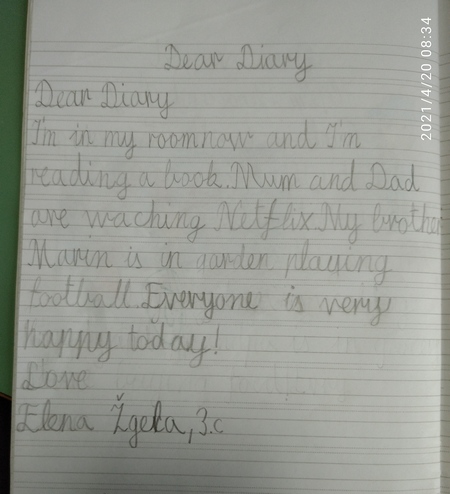 Dear Diary
Dear Diary
I'm in my room now and I'm
reading a book. Mum and Dad
are waching Netflix. My brother
Marin is in garden playing
football. Everyone is very
happy today!
Love
Elena Žgela, 3.c
2021/4/20 08:34